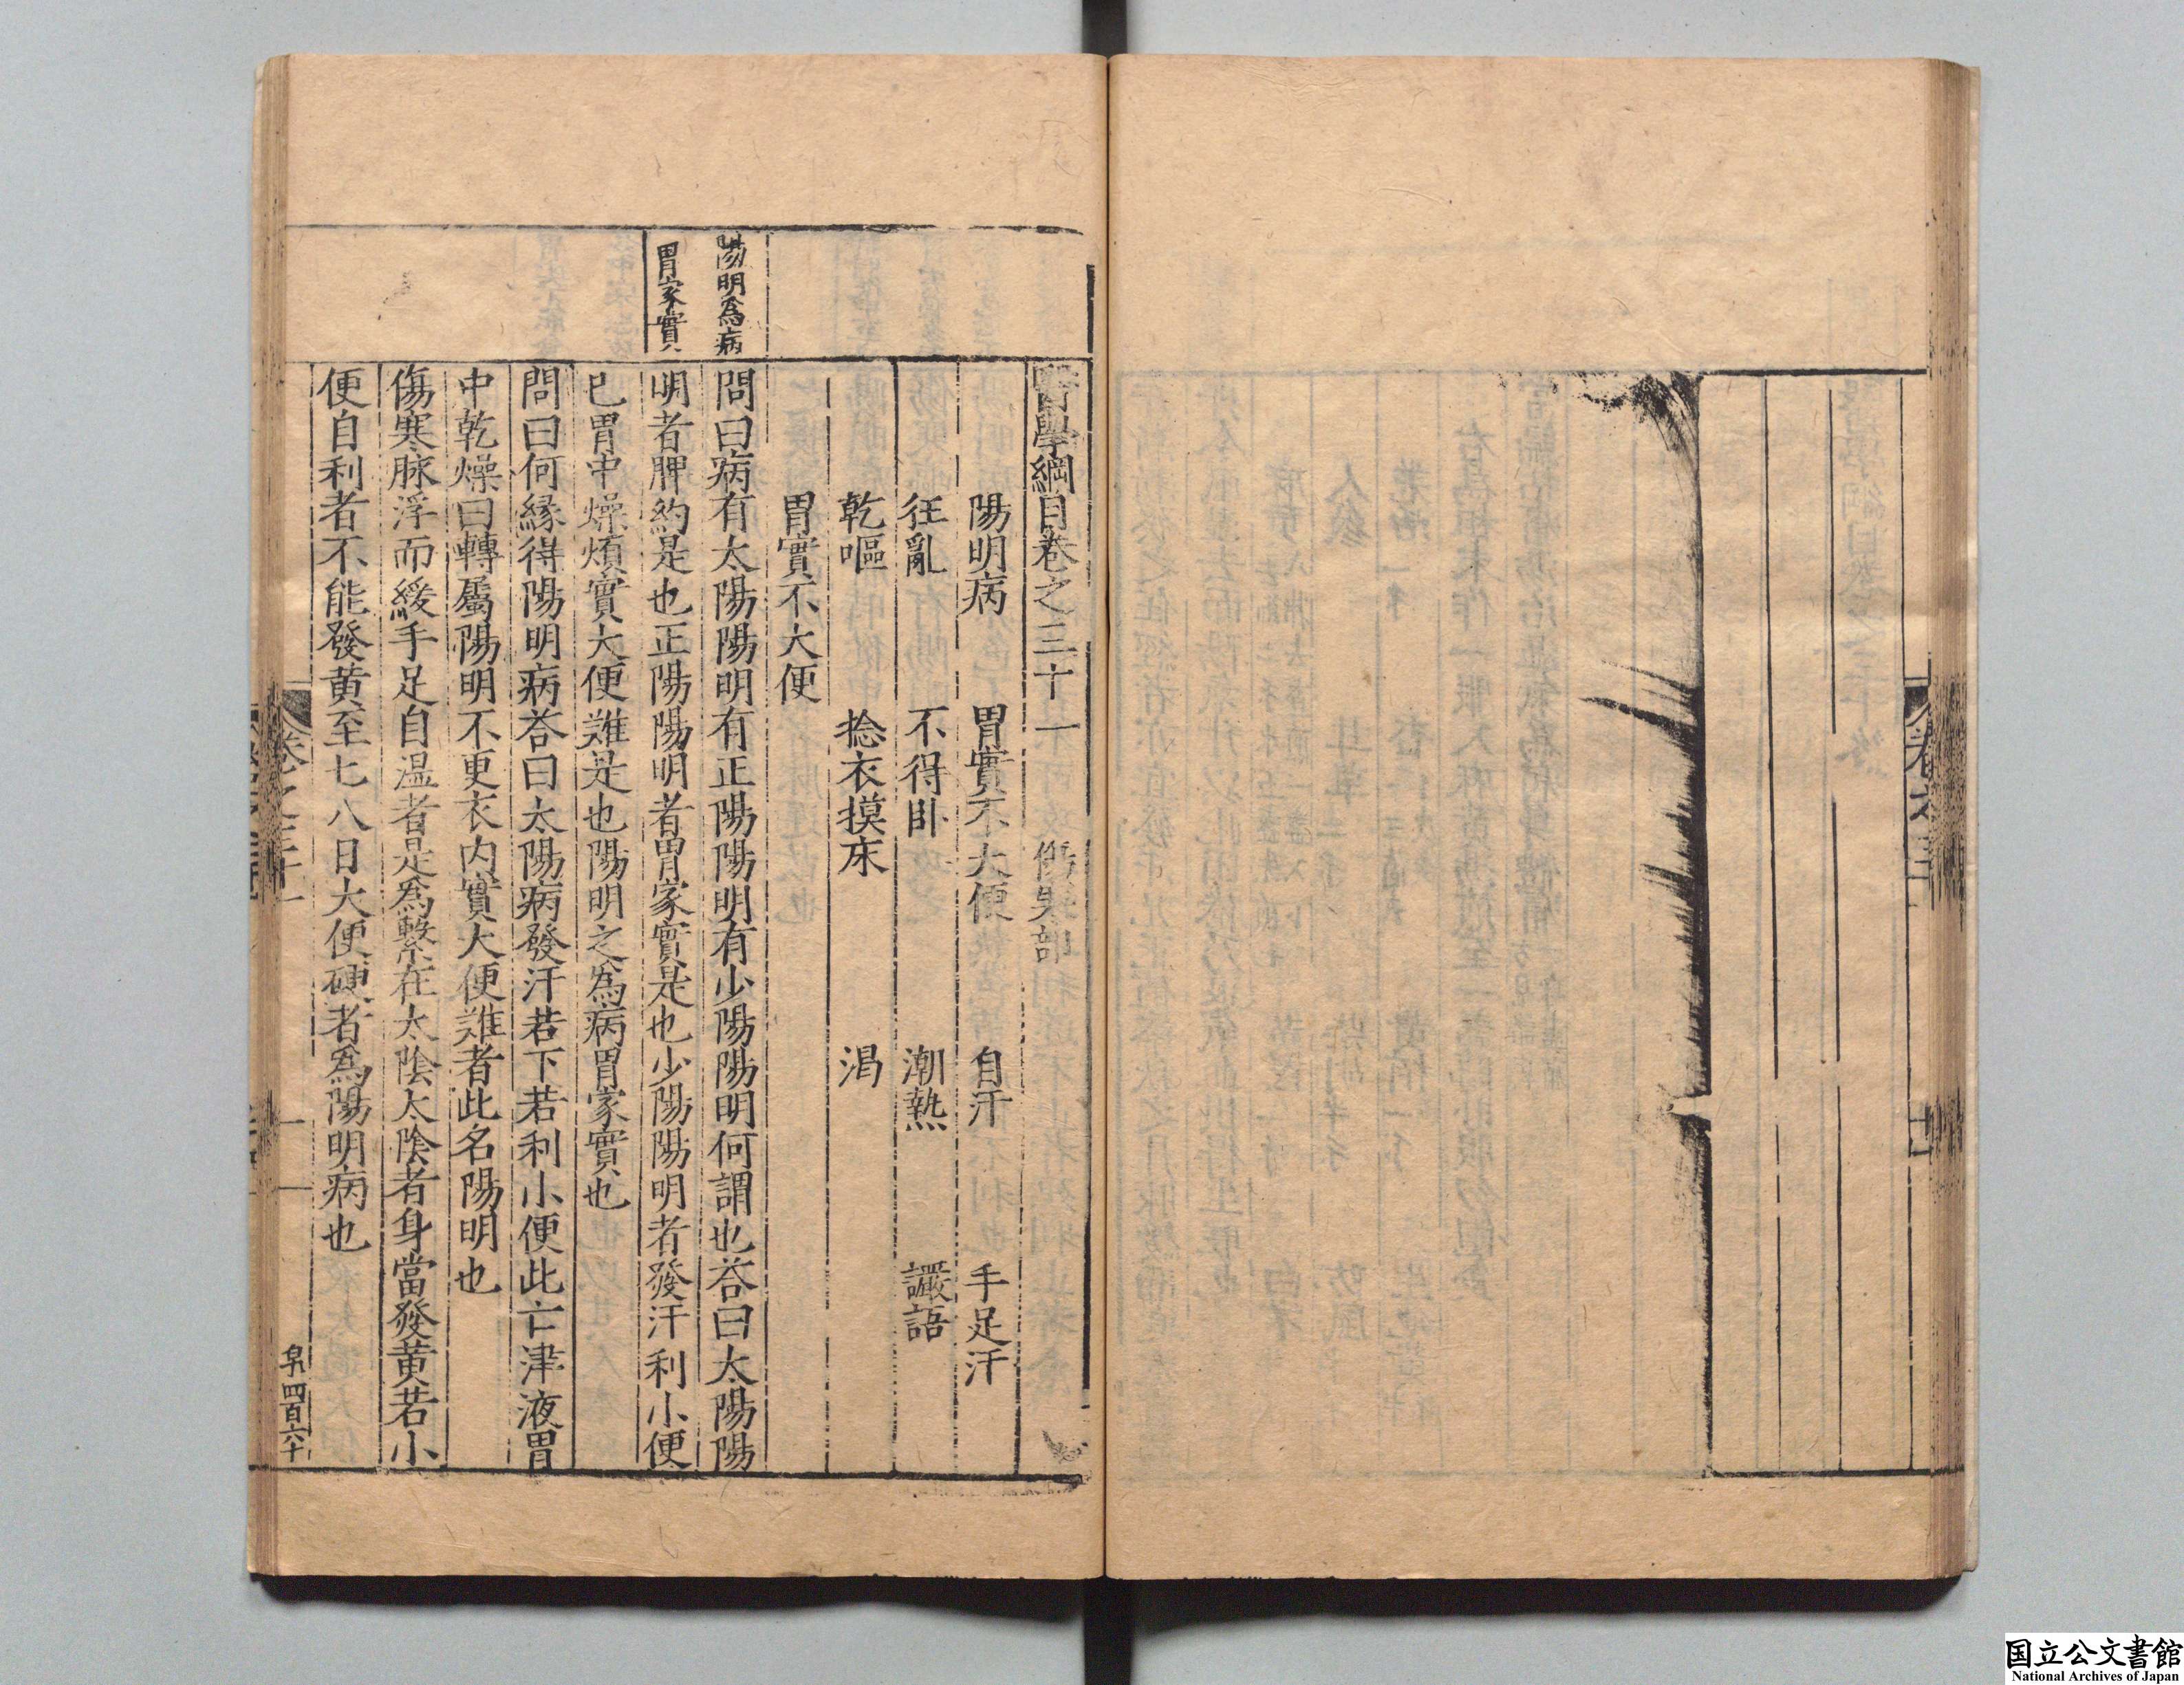 卷之三十
醫學綱目卷之三十一 傷寒部
陽明病 胃實不大便 自汗 手足汗
狂亂 不得臥 潮熱 讝語
乾嘔 捻衣摸床 渴
胃實不大便
陽明爲病
問曰病有太陽陽明有正陽陽明有少陽陽明何謂也荅曰太陽陽
胃家實
明者脾約是也正陽陽明者胃家實是也少陽陽明者發汗利小便
已胃中燥煩實大便難是也陽明之爲病胃家實也
問曰何緣得陽明病荅曰太陽病發汗若下若利小便此亡津液胃
中乾燥曰轉屬陽明不更衣內實大便難者此名陽明也
傷寒脉浮而緩手足自温者是爲繫在太陰太陰者身當發黃若小
便自利者不能發黃至七八日大便硬者爲陽明病也
卷之三十一
一
四百六十
国立公文書館
National Archives of Japan